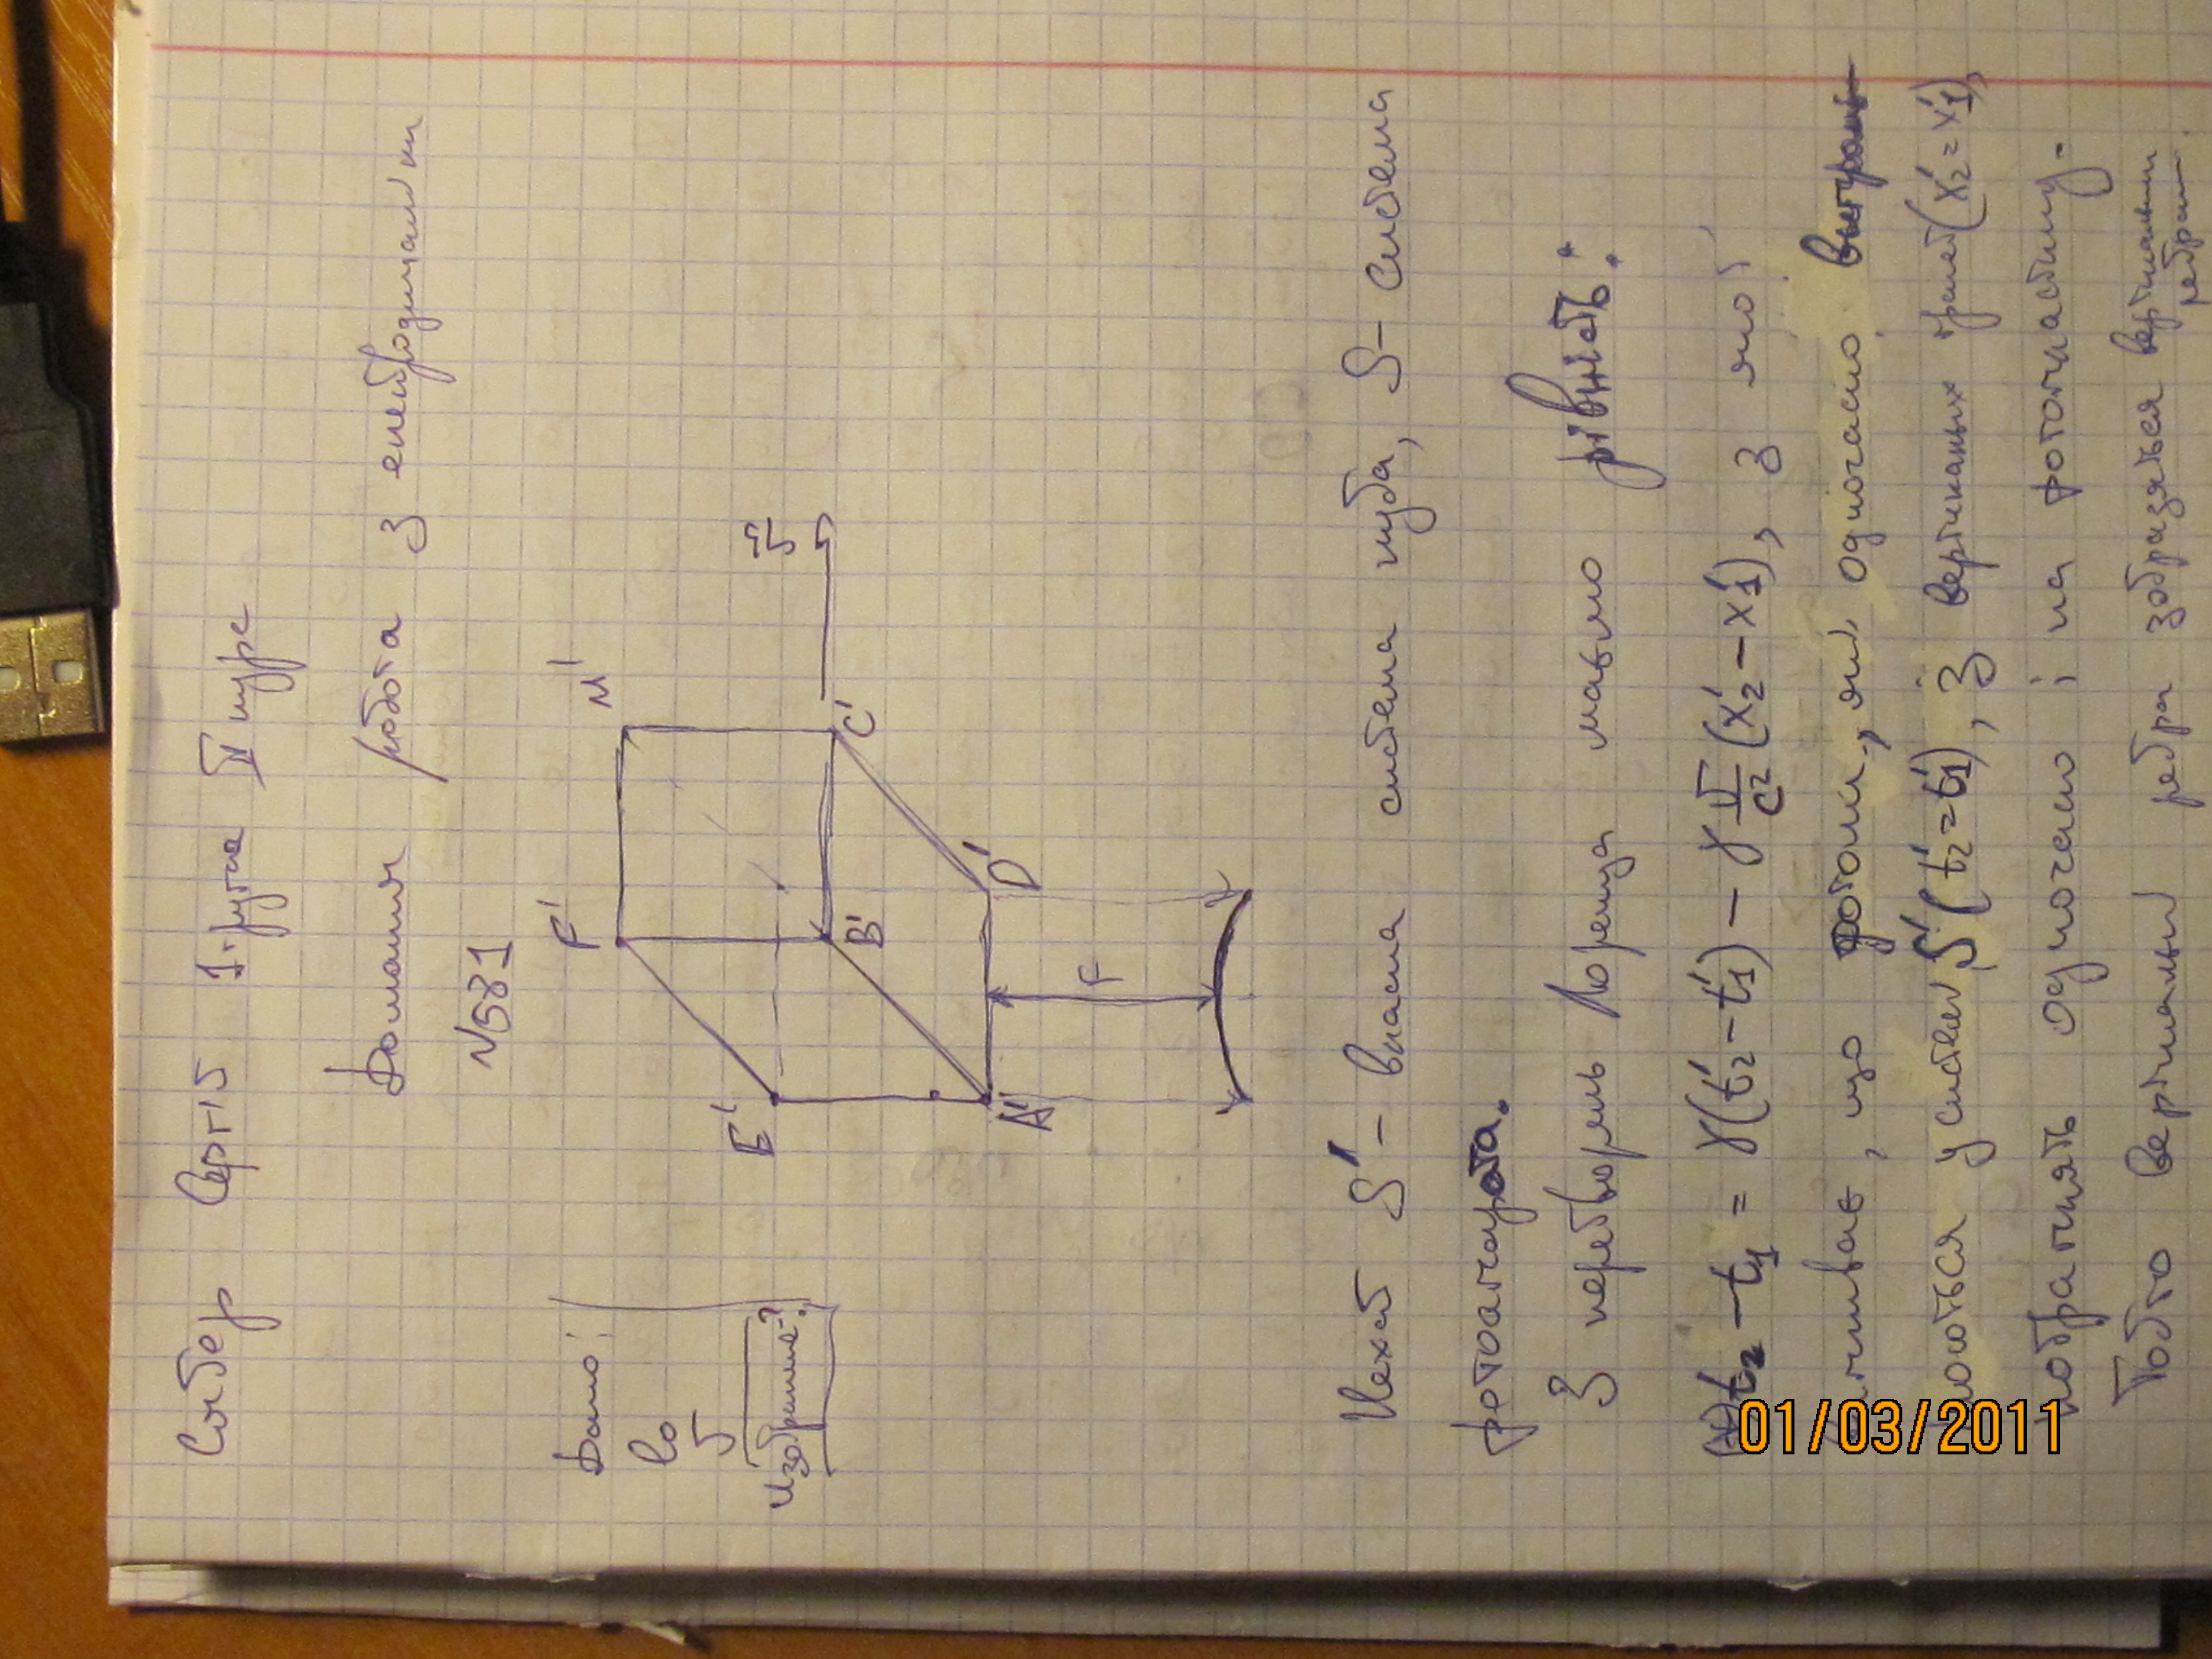 Сергій 1 група IV курс
Домашня робота з електродинаміки
N581
Дано:
l₀
v
Изображение-?
E'
F'
M'
A'
B'
C'
D'
v⃗
F
Нехай S' – власна система куба, S – система
фотоапарата.
З перетворень Лоренца маємо рівність:
(*) t₂ – t₁ = γ(t'₂ – t'₁) – γ v/c² (x'₂ – x'₁), з якої
, що фотони, які одночасно
у системі S' (t'₂ = t'₁), з вертикальних граней (x'₂ = x'₁),
одночасно і на фотопластину-
Тобто вертикальні ребра зобразяться вертикальними
ребрами.
01/03/2011